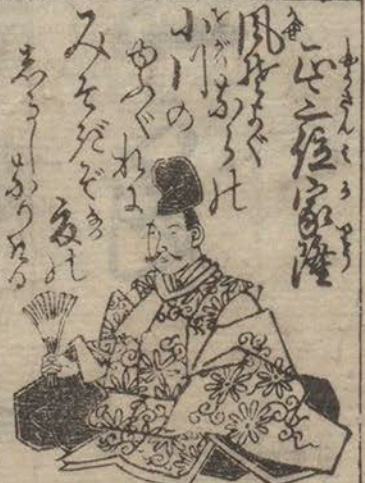 位家隆
風そよぐ
ならの
小川の
ゆふぐれは
みそぎぞ
夏の
しるしなりける